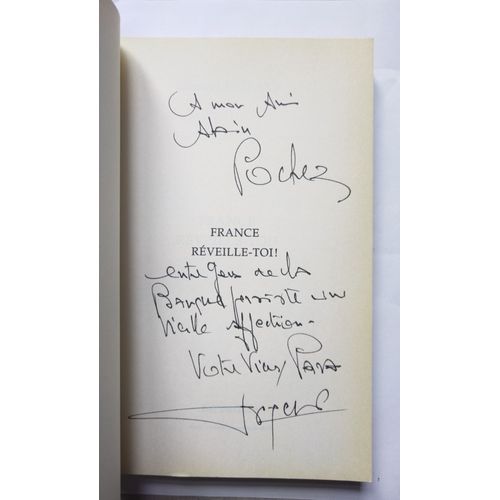 A mon Ami
Alain
Pochez
FRANCE
RÉVEILLE-TOI!
entre gens de la
Banque persiste une
vieille affection -
Votre Vieux Papa